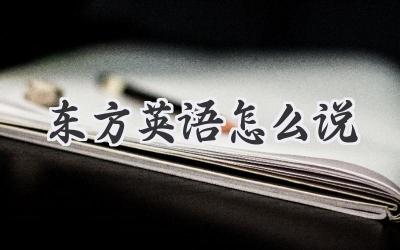 东方英语怎么说